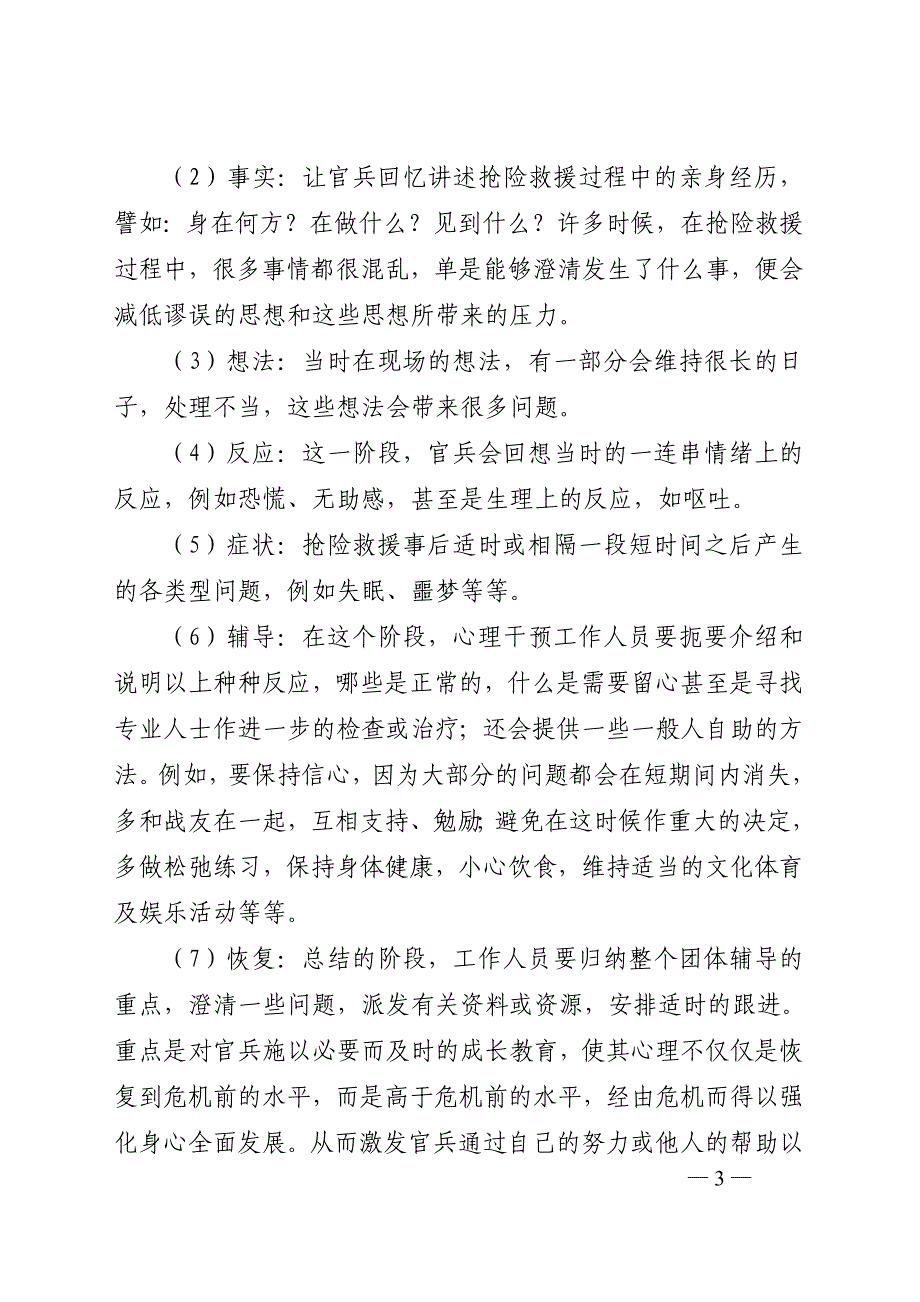 （2）事实：让官兵回忆讲述抢险救援过程中的亲身经历，
譬如：身在何方？在做什么？见到什么？许多时候，在抢险救援
过程中，很多事情都很混乱，单是能够澄清发生了什么事，便会
减低谬误的思想和这些思想所带来的压力。
（3）想法：当时在现场的想法，有一部分会维持很长的日
子，处理不当，这些想法会带来很多问题。
（4）反应：这一阶段，官兵会回想当时的一连串情绪上的
反应，例如恐慌、无助感，甚至是生理上的反应，如呕吐。
（5）症状：抢险救援事后适时或相隔一段短时间之后产生
的各类型问题，例如失眠、噩梦等等。
（6）辅导：在这个阶段，心理干预工作人员要扼要介绍和
说明以上种种反应，哪些是正常的，什么是需要留心甚至是寻找
专业人士作进一步的检查或治疗；还会提供一些一般人自助的方
法。例如，要保持信心，因为大部分的问题都会在短期间内消失，
多和战友在一起，互相支持、勉励；避免在这时候作重大的决定，
多做松弛练习，保持身体健康，小心饮食，维持适当的文化体育
及娱乐活动等等。
（7）恢复：总结的阶段，工作人员要归纳整个团体辅导的
重点，澄清一些问题，派发有关资料或资源，安排适时的跟进。
重点是对官兵施以必要而及时的成长教育，使其心理不仅仅是恢
复到危机前的水平，而是高于危机前的水平，经由危机而得以强
化身心全面发展。从而激发官兵通过自己的努力或他人的帮助以
— 3 —